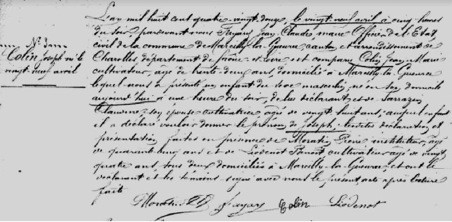 Colin Joseph né le
vingt neuf avril
L'an mil huit cent quatre vingt douze, le vingt neuf avril à cinq heures
du soir, par devant nous Fayard Jean Claude maire Officier de l'Etat
civil de la commune de Marcilly la Gueurce, canton et arrondissement de
Charolles, département de Saône-et-Loire, est comparu Colin Jean Marie
cultivateur, âgé de trente deux ans, domicilié à Marcilly la Gueurce
lequel nous a présenté un enfant du sexe masculin, né en son domicile
aujourd'hui à une heure du soir, de lui déclarant et de
son épouse cultivatrice âgée de vingt huit ans, auquel enfant
il a déclaré vouloir donner le prénom de Joseph, lesdites déclaration et
présentation faites en présence de Pierre instituteur, âgé
de quarante cinq ans et de cultivateur, âgé de vingt
quatre ans tous deux domiciliés à Marcilly la Gueurce, et ont le
déclarant et les témoins signé avec nous le présent acte après lecture
faite
Colin